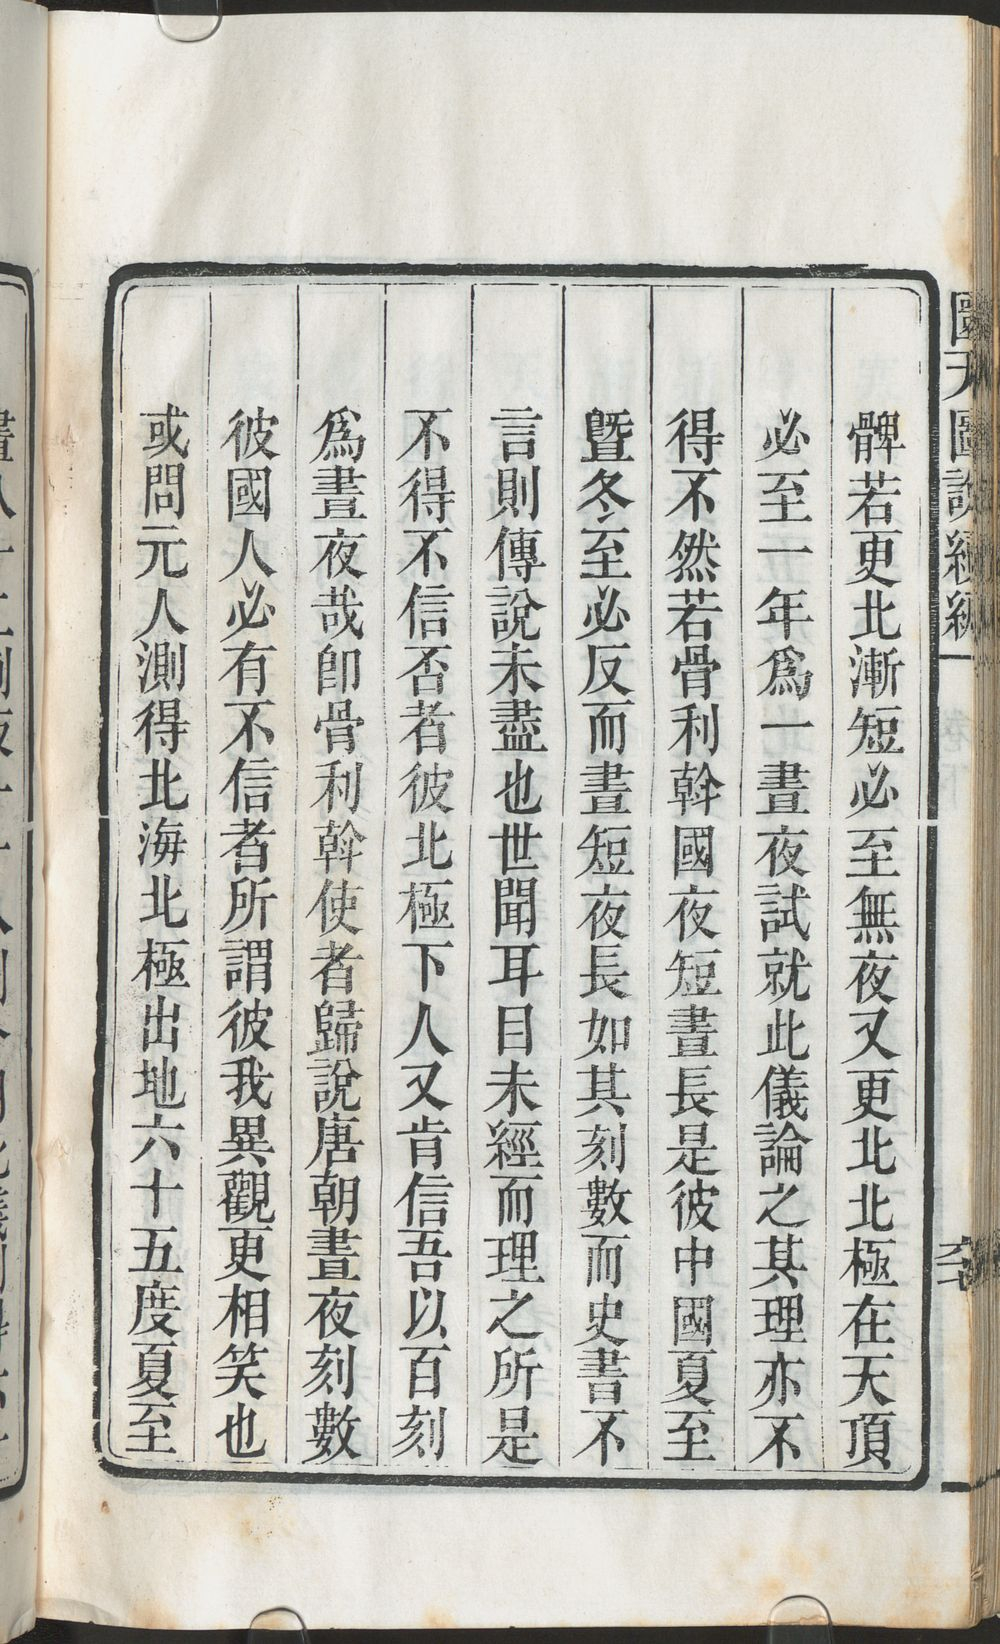 圜天圖說續編
髀若更北漸短必至無夜又更北北極在天頂
必至一年爲一晝夜試就此儀論之其理亦不
得不然若骨利斡國夜短晝長是彼中國夏至
曁冬至必反而晝短夜長如其刻數而史書不
言則傳說未盡也世聞耳目未經而理之所是
不得不信否者彼北極下人又肯信吾以百刻
爲晝夜哉卽骨利斡使者歸說唐朝晝夜刻數
彼國人必有不信者所謂彼我異觀更相笑也
或問元人測得北海北極出地六十五度夏至